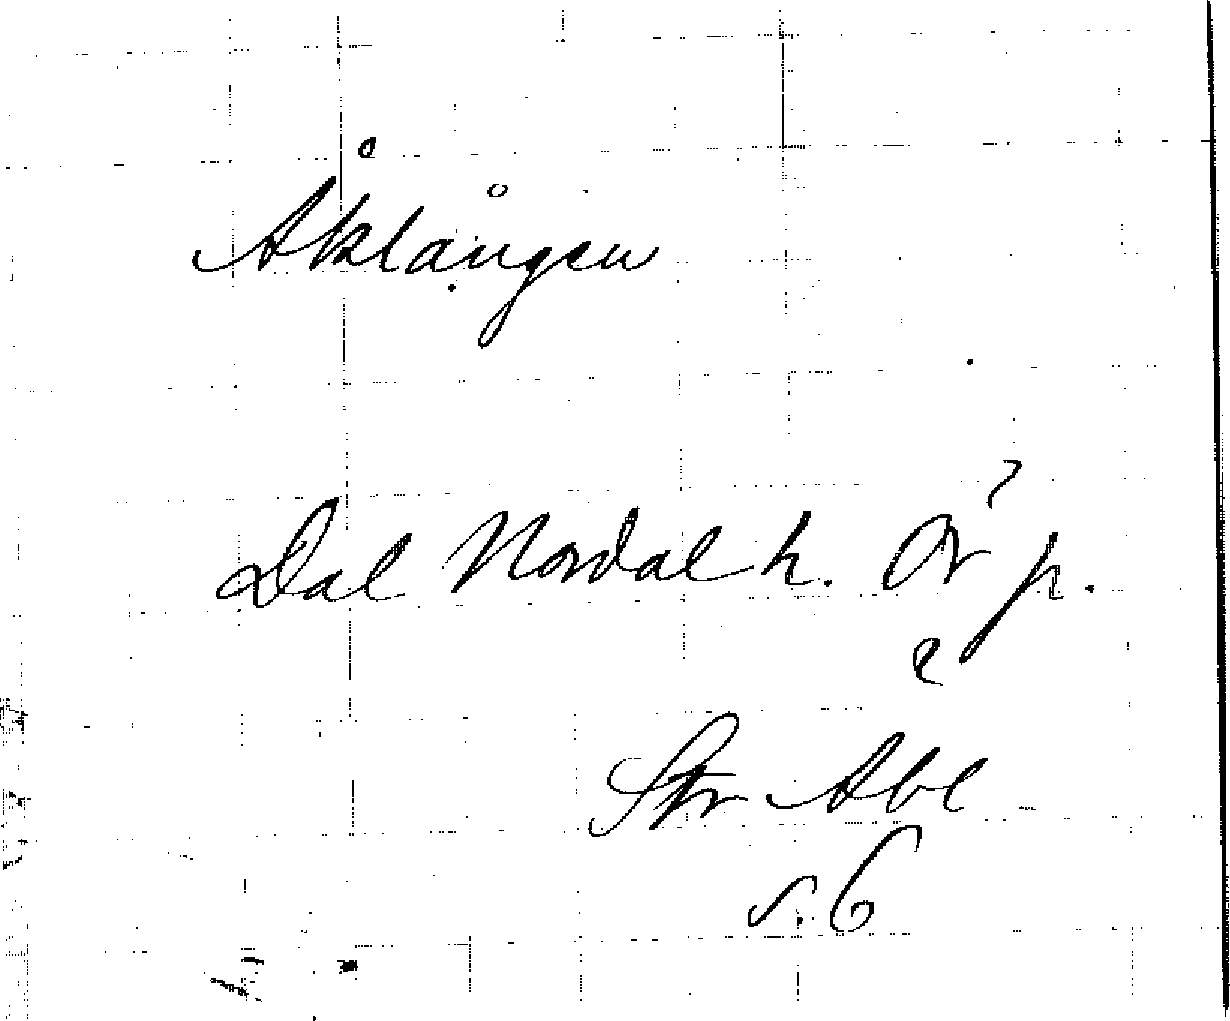 Åklången
Dal Nordal h. Ör p.
Str Abl
s. 6